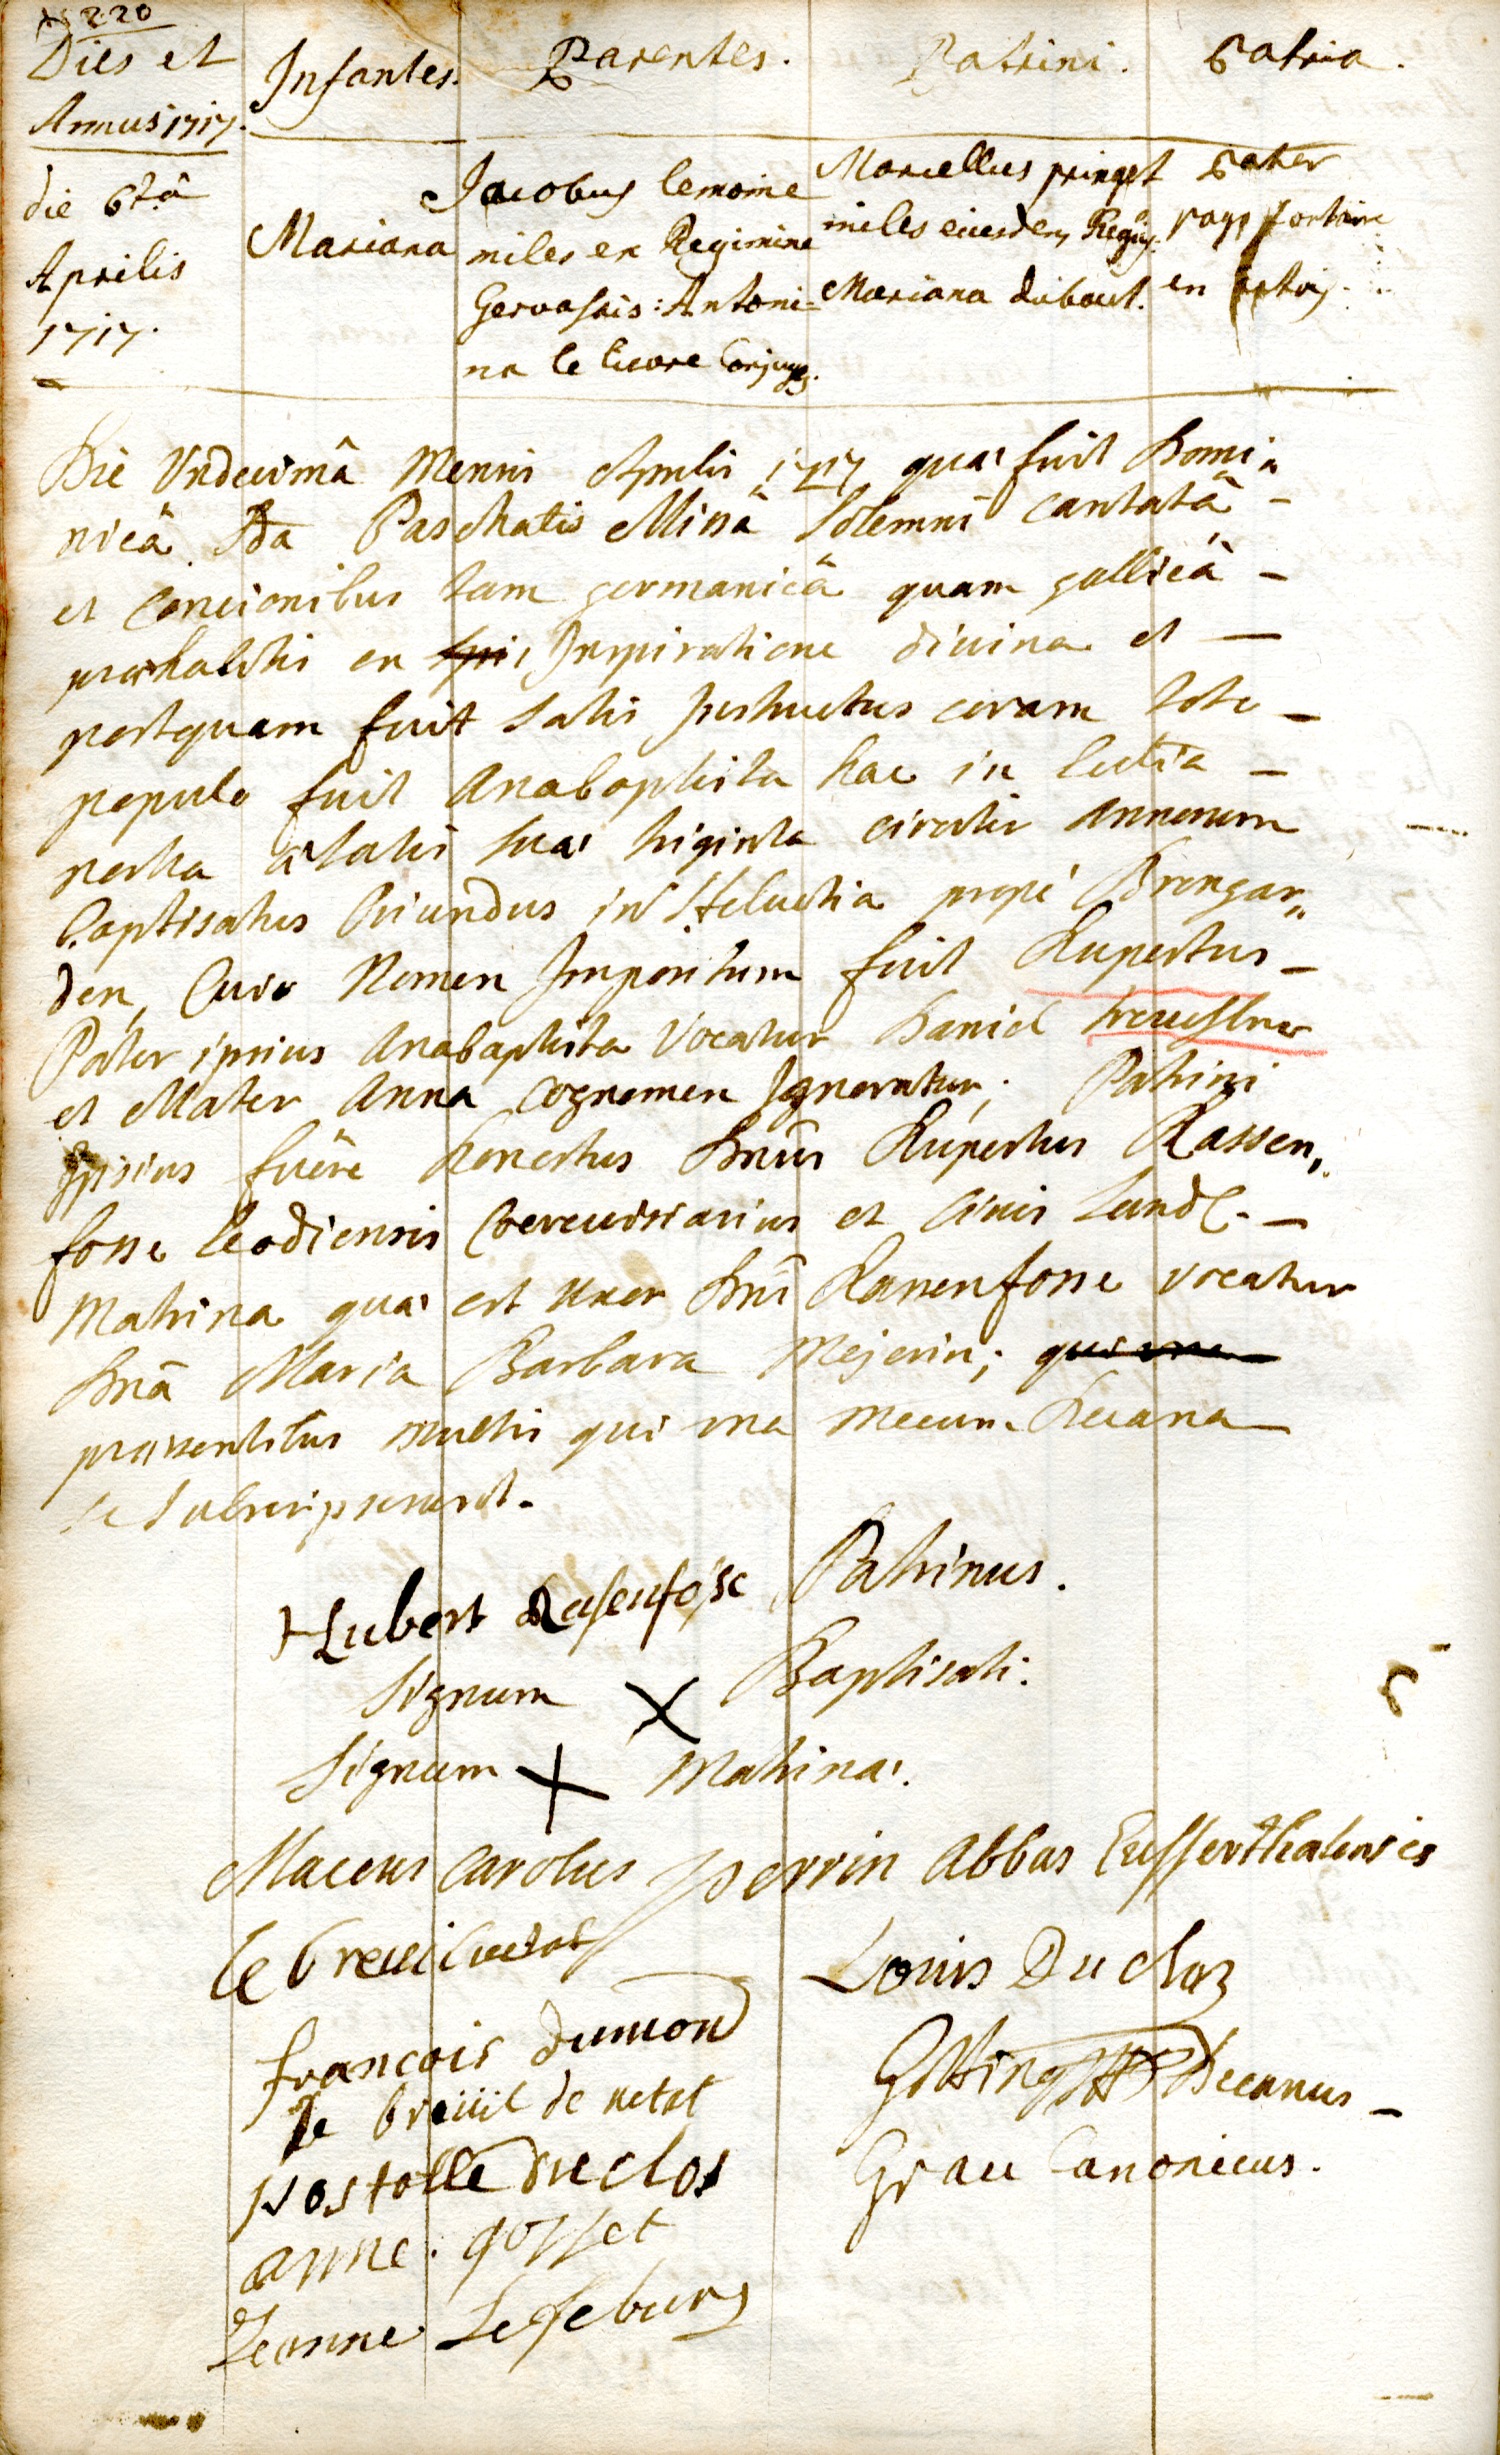 220
Dies et Annus 1717. Infantes. Parentes. Patrini. Patria.
die 6tâ Aprilis 1717.
Mariana
Jacobus lemoine
miles ex Regimine
Gervasais: Antoni-
na le lievre Conjuges.
Marcellus pringet
miles eiusdem Regim.
Mariana dubout.
Pater
en artois
Die Undecimâ Mensis Aprilis 1717 quae fuit Domi„
nicâ 2da Paschatis Missâ Solemni cantatâ –
et Concionibus tam germanicâ quam gallicâ –
prohabitis ex Inspiratione divina et —
postquam fuit satis Instructus coram toto –
populo fuit Anabaptista hac in
nostra aetatis suae triginta circiter annorum
baptisatus Oriundus in Helvetia propè Bremgar„
den, Cuio Nomen Impositum fuit Rupertus –
Pater ipsius Anabaptista Vocatur Daniel
et Mater Anna cognomen Ignoratur; Patrini
Ipsius fuêre honestus Dnus Rupertus Rassen„
fosse Leodiensis Cerevisiarius et Civis Land. –
Matrina quae est Uxor Dni Rassenfosse vocatur
Dna Maria Barbara Mejerin;
praesentibus multis qui una mecum Decano
se subscripserunt.
Hubert Rasenfosse Patrinus.
Signum X Baptisati.
Signum X Matrinae.
Carolus perrin Abbas Eusserthalensis
le breüil
Louis Du cloz
francois dumond
Decanus –
le breüil de netat
postolle duclos
Grau Canonicus.
anne. gosset
Jeanne Lefeburs